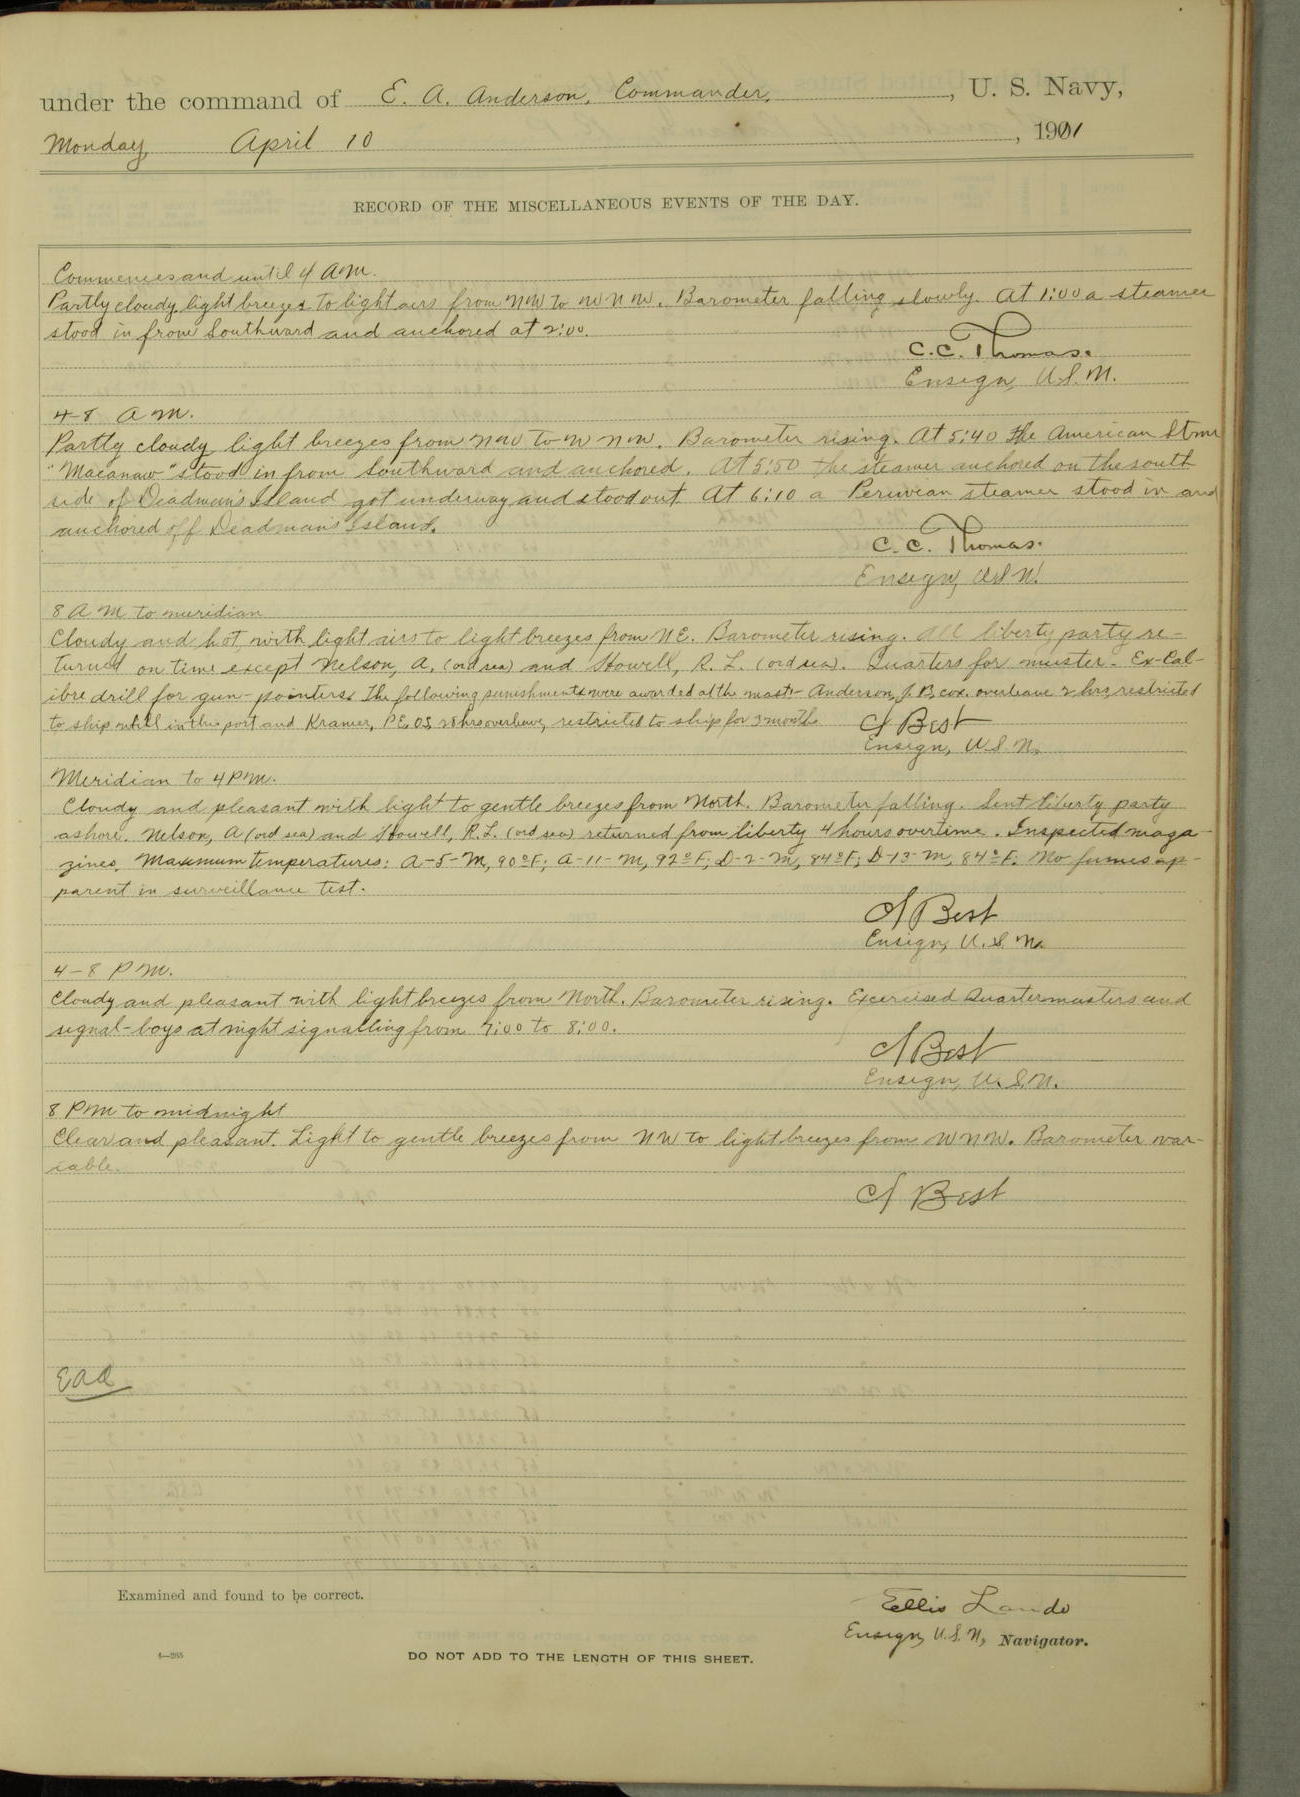 under the command of E. A. Anderson, Commander, , U. S. Navy,
Monday, April 10 , 1911
RECORD OF THE MISCELLANEOUS EVENTS OF THE DAY.
Commences and until 4 A.M.
Partly cloudy, light breezes to light airs from NW to WNW. Barometer falling slowly. At 1:00 a steamer
stood in from Southward and anchored at 2:00.
C. C. Thomas.
Ensign, U.S.N.
4-8 A M.
Partly cloudy, light breezes from NW to WNW. Barometer rising. At 5:40 the American Stmr
"Macanaw" stood in from Southward and anchored. At 5:50 the steamer anchored on the south
side of Deadman's Island got underway and stood out. At 6:10 a Peruvian steamer stood in and
anchored off Deadmans Island.
C. C. Thomas.
Ensign, U.S.N.
8 A M to meridian
Cloudy and hot, with light airs to light breezes from NE. Barometer rising. All liberty party re-
turned on time except Nelson, A. (ord sea) and Howell, R. L. (ord sea). Quarters for muster. Ex-Cal-
ibre drill for gun-pointers. The following punishments were awarded at the mast:- Anderson, J. B, cox. overleave 2 hrs, restricted
to ship while in this port and Kramer, P.E, OS, 28 hrs overleave, restricted to ship for 3 month.
Best
Ensign, U.S.N.
Meridian to 4 P M.
Cloudy and pleasant with light to gentle breezes from North. Barometer falling. Sent liberty party
ashore. Nelson, A (ord sea) and Howell, R.L. (ord sea) returned from liberty 4 hours overtime. Inspected maga-
zines. Maximum temperatures: A-5-M, 90°F; A-11-M, 92°F; D-2-M, 84°F; D-13-M, 84°F. No fumes ap-
parent in surveillance test.
Best
Ensign, U.S.N.
4-8 P M.
Cloudy and pleasant with light breezes from North. Barometer rising. Excercised Quartermasters and
signal-boys at night signalling from 7:00 to 8:00.
Best
Ensign, U.S.N.
8 P M to midnight
Clear and pleasant. Light to gentle breezes from NW to light breezes from WNW. Barometer var-
iable.
Best
EAA
Examined and found to be correct.
Ellis Lando
Ensign, U.S.N, Navigator.
4—265
DO NOT ADD TO THE LENGTH OF THIS SHEET.